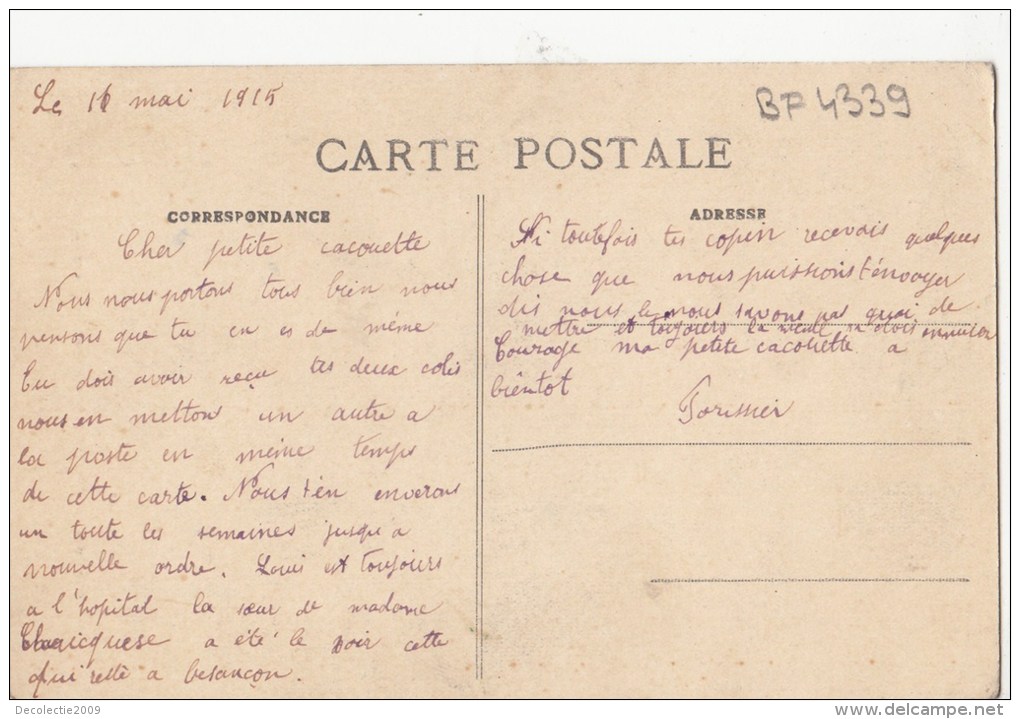 Le 16 mai 1915
BP 4339
CARTE POSTALE
CORRESPONDANCE
Cher petite cacouette
Nous nous portons tous bien nous
pensons que tu en es de même
Tu dois avoir reçu tes deux colis
nous en mettons un autre a
la poste en même temps
de cette carte. Nous t'en enverons
un toute les semaines jusqu'a
nouvelle ordre. Louis est toujours
a l'hopital la sœur de madame
a été le voir cette
qui reste a besançon.
ADRESSE
Si toutefois tes copin recevais quelques
chose que nous puissions t'envoyer
dis nous le nous savons pas quoi de
mettre et toujours la
Courage ma petite cacouette a
bientot
Decolectie2009
www.delcampe.net